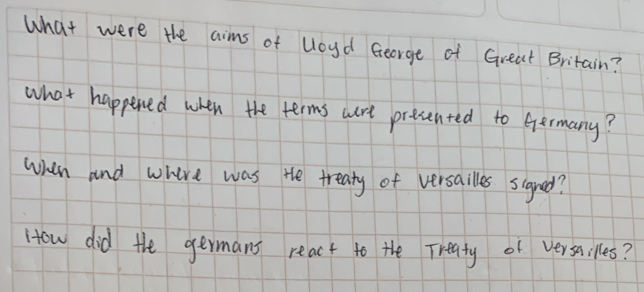 What were the aims of Lloyd George of Great Britain?
What happened when the terms were presented to Germany?
When and where was the treaty of versailles signed?
How did the germans react to the Treaty of versailles?